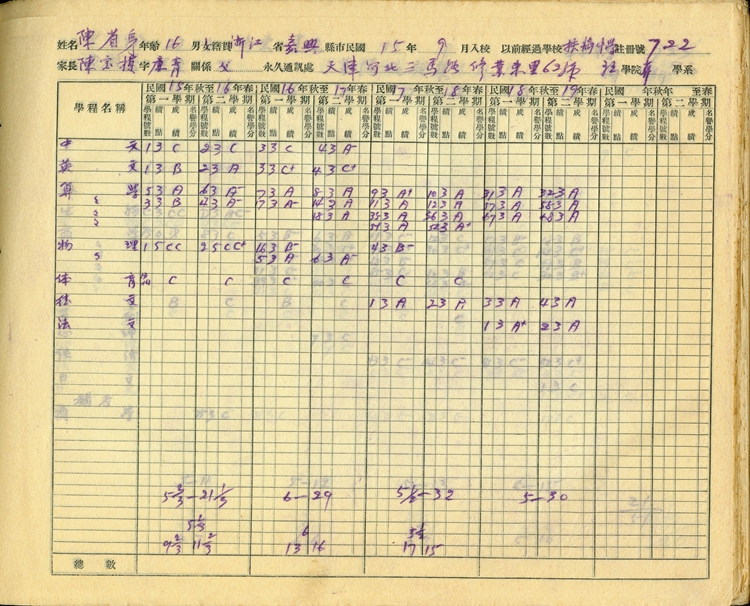 姓名 陳省身 年齡 16 男女 籍貫 浙江 省 嘉興 縣市 民國 15 年 9 月入校 以前經過學校 扶輪中學 註冊號 722
家長 陳宝楨 字 康青 關係 父 永久通訊處 天津河北三馬路修業東里62號 理 學院 算 學系
學程名稱 民國15年秋至16年春 民國16年秋至17年春 民國17年秋至18年春 民國18年秋至19年春 民國 年秋 至 年春
第一學期 第二學期 第一學期 第二學期 第一學期 第二學期 第一學期 第二學期 第一學期 第二學期
中文 1 3 C 2 3 C 3 3 C 4 3 A-
英文 1 3 B 2 3 A 3 3 C+ 4 3 C+
算學 5 3 A 6 3 A- 7 3 A- 8 3 A 9 3 A+ 10 3 A 31 3 A 32 3 A
3 3 B 4 3 A- 17 3 A- 14 3 A 11 3 A 12 3 A 37 3 A 38 3 A
18 3 A 35 3 A 36 3 A 47 3 A 48 3 A
51 3 A 52 3 A+
物理 1 5 CC 2 5 CC+ 16 3 B- 43 B-
5 3 A 6 3 A-
体育 C C C C C C
德文 1 3 A 2 3 A 3 3 A 4 3 A
法文 1 3 A+ 2 3 A
5 2/3 — 21 1/3 6 — 29 5 1/2 — 32 5 — 30
5 1/3 6 3 1/2
9 2/3 11 2/3 13 16 17 15
總數